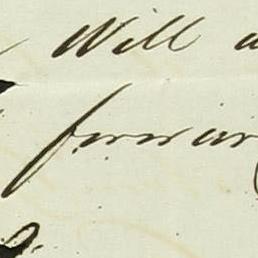 Will
forwar